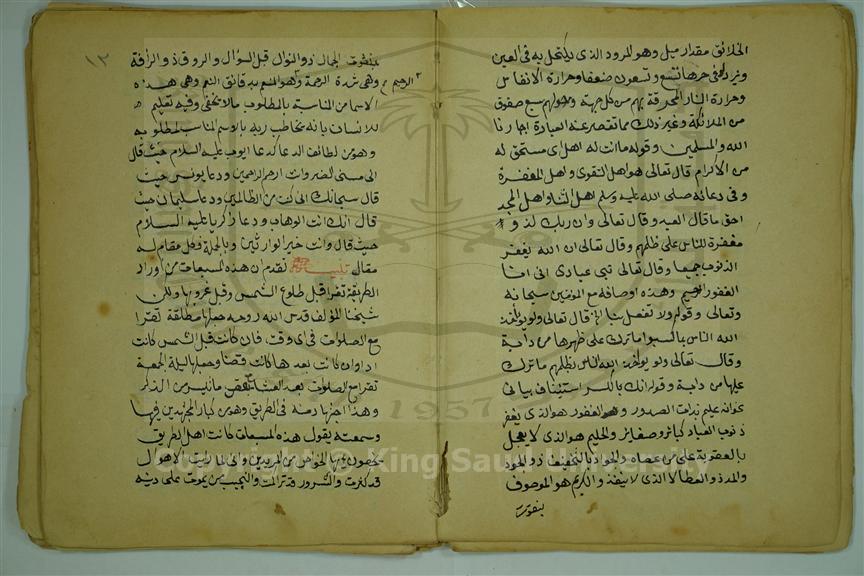 الخلائق مقدار ميل وهو المرود الذى يكتحل به فى العين
ويزداد فى حرها تسع وتسعون ضعفا وحرارة الانفاس
وحرارة النار المحرقة بهم من كل جهة وحولهم سبع صفوف
من الملائكة وغير ذلك مما تقصر عنه العبارة اجارنا
الله والمسلمين وقوله ما انت له اهل اى مستحق له
من الاكرام قال تعالى هو اهل التقوى واهل المغفرة
وفى دعائه صلى الله عليه وسلم اهل الثناء واهل المجد
احق ما قال العبد وقال تعالى وان ربك لذو
مغفرة للناس على ظلمهم وقال تعالى ان الله يغفر
الذنوب جميعا وقال تعالى نبى عبادى انى انا
الغفور الرحيم وهذه اوصافه مع المومنين سبحانه
وتعالى وقوله ولا تفعل بنا الخ قال تعالى ولو يواخذ
الله الناس بما كسبوا ما ترك على ظهرها من دابة
وقال تعالى ولو يواخذ الله الناس بظلمهم ما ترك
عليها من دابة وقوله انك بالكسر استئناف بيانى
عليم بذات الصدور والغفور هو الذى يغفر
ذنوب العباد كبائر وصغائر والحليم هو الذى لا يعجل
بالعقوبة على من عصاه والجواد بالتخفيف ذو الجود
والمدد والعطا الذى لا ينفذ والكريم هو الموصوف
بنعوت
١٢
بنعوت الجمال ذو النوال قبل السؤال والروف ذو الرأفة
وهى شدة الرحمة والرحيم هو المنعم بدقائق النعم وهى هذه
الاسما من المناسبة بالمطلوب مالا يخفى وفيه تعليم
للانسان بانه يخاطب ربه بالاسم المناسب لمطلوبه
وهو من لطائف الدعا كدعا ايوب عليه السلام حيث قال
انى مسنى الضر وانت ارحم الراحمين ودعا يونس حيث
قال سبحانك انى كنت من الظالمين ودعا سليمان حيث
قال انك انت الوهاب ودعا زكريا عليه السلام
حيث قال وانت خير الوارثين وبالجملة فلكل مقام له
مقال تنبيه تقدم ان هذه المسبعات من اوراد
الطريقة تقرا قبل طلوع الشمس وقبل غروبها ولكن
شيخنا المؤلف قدس الله روحه جعلها مطلقة تقرا
مع الصلوات فى اى وقت فان كانت قبل الشمس كانت
اداوان كانت بعدها كانت قضا وجعلها ليلة الجمعة
تقرا مع الصلوات بعد العشا لـ من الذكر
وهذا اجتهاد منه فى الطريق وهو من كبار المجتهدين فيها
وسمعته يقول هذه المسبعات كانت اهل الطريق
يخصون بها الخواص من المريدين وانى لما رايت الاهوال
قد كثرت والشرور قد تراكمت والنجيب من يموت على دينه
Copyright © King Saud University
1957